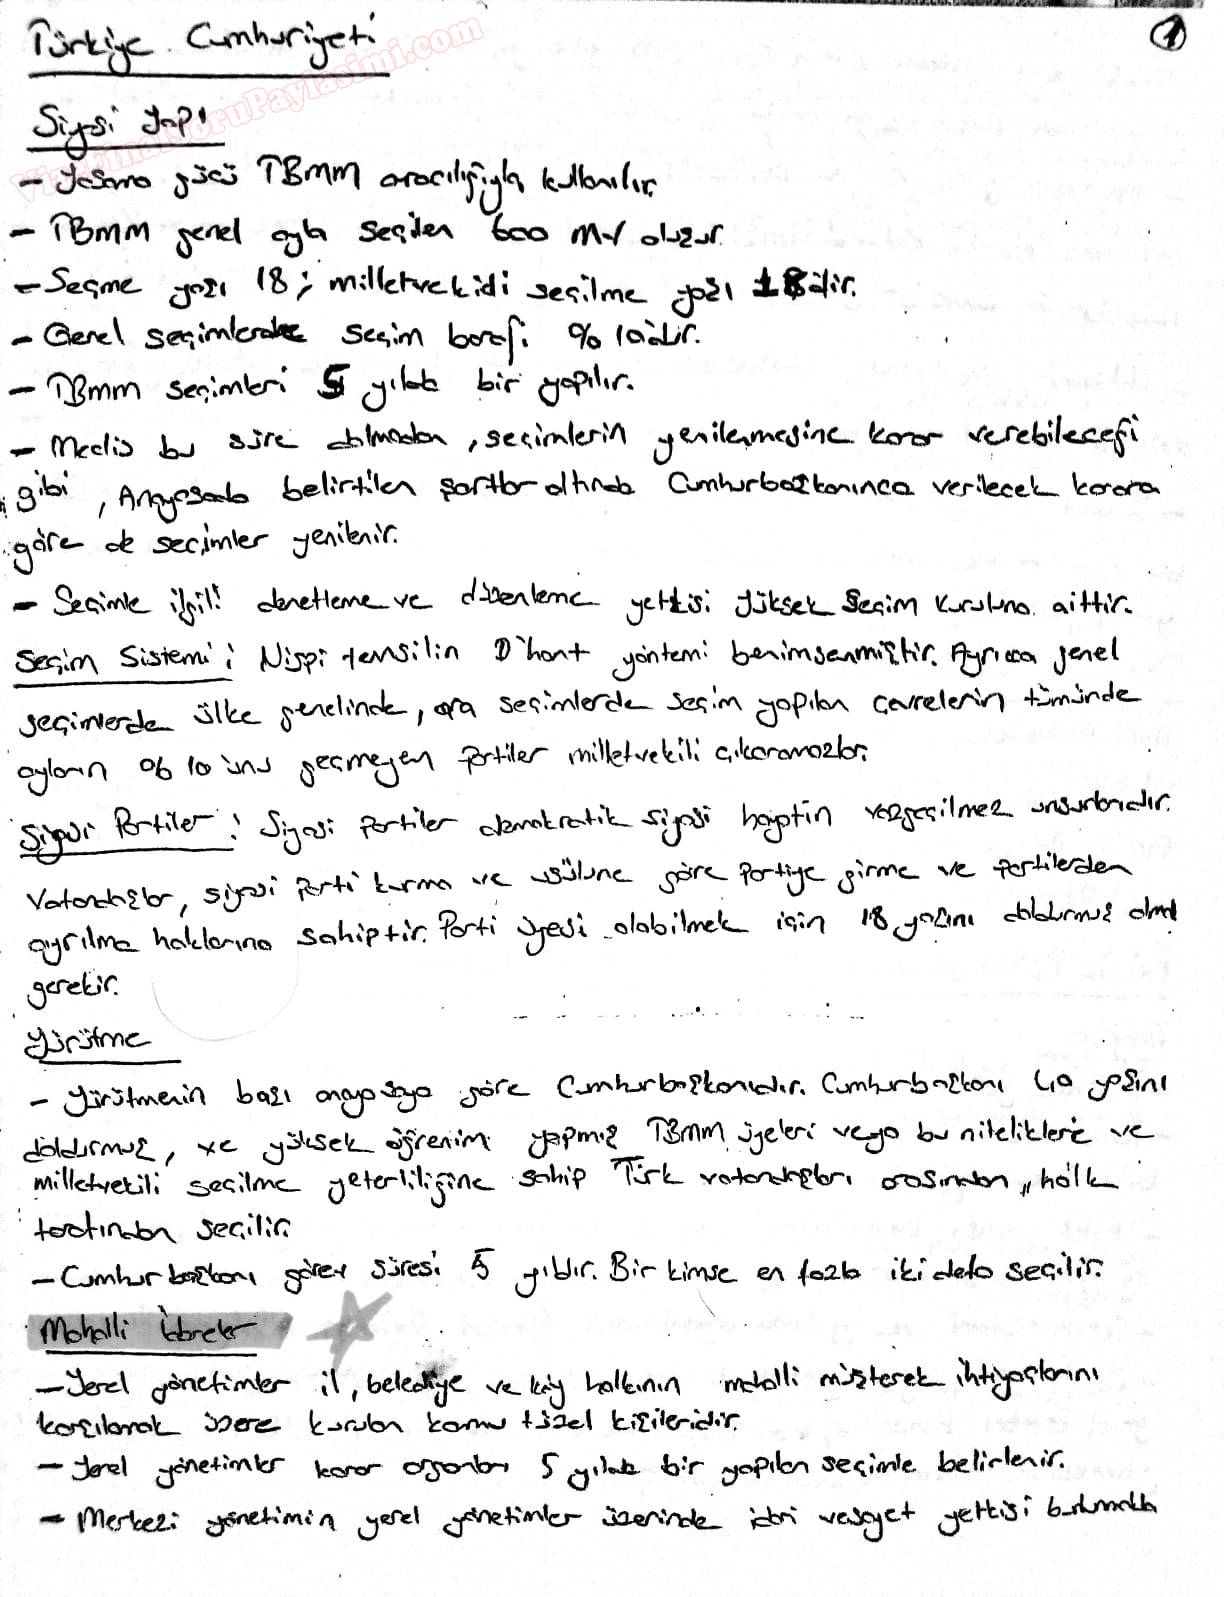 Türkiye Cumhuriyeti
1
VizeFinalSoruPaylasimi.com
Siyasi Yapı
- Yasama gücü TBMM aracılığıyla kullanılır.
- TBMM genel oyla seçilen 600 M.V oluşur.
- Seçme yaşı 18; milletvekidi seçilme yaşı 18dir.
- Genel seçimlerde seçim barajı %10'dur.
- TBMM seçimleri 5 yılda bir yapılır.
- Meclis bu süre dolmadan, seçimlerin yenilenmesine karar verebileceği
gibi, Anayasada belirtilen şartlar altında Cumhurbaşkanınca verilecek karara
göre de seçimler yenilenir.
- Seçimle ilgili denetleme ve düzenleme yetkisi Yüksek Seçim Kuruluna aittir.
Seçim Sistemi: Nispi temsilin D'hont yöntemi benimsenmiştir. Ayrıca genel
seçimlerde ülke genelinde, ara seçimlerde seçim yapılan çevrelerin tümünde
oyların %10'unu geçmeyen partiler milletvekili çıkaramazlar.
Siyasi Partiler: Siyasi partiler demokratik siyasi hayatın vazgeçilmez unsurlarıdır.
Vatandaşlar, siyasi parti kurma ve usülüne göre partiye girme ve partilerden
ayrılma haklarına sahiptir. Parti üyesi olabilmek için 18 yaşını doldurmuş olmak
gerekir.
Yürütme
- Yürütmenin başı anayasaya göre Cumhurbaşkanıdır. Cumhurbaşkanı 40 yaşını
doldurmuş, ve yüksek öğrenim yapmış TBMM üyeleri veya bu niteliklere ve
milletvekili seçilme yeterliliğine sahip Türk vatandaşları arasından, halk
tarafından seçilir.
- Cumhurbaşkanı görev süresi 5 yıldır. Bir kimse en fazla iki defa seçilir.
Mahalli İdareler
- Yerel yönetimler il, belediye ve köy halkının mahalli müşterek ihtiyaçlarını
karşılamak üzere kurulan kamu tüzel kişileridir.
- Yerel yönetimler karar organları 5 yılda bir yapılan seçimle belirlenir.
- Merkezi yönetimin yerel yönetimler üzerinde idari vesayet yetkisi bulunmakta